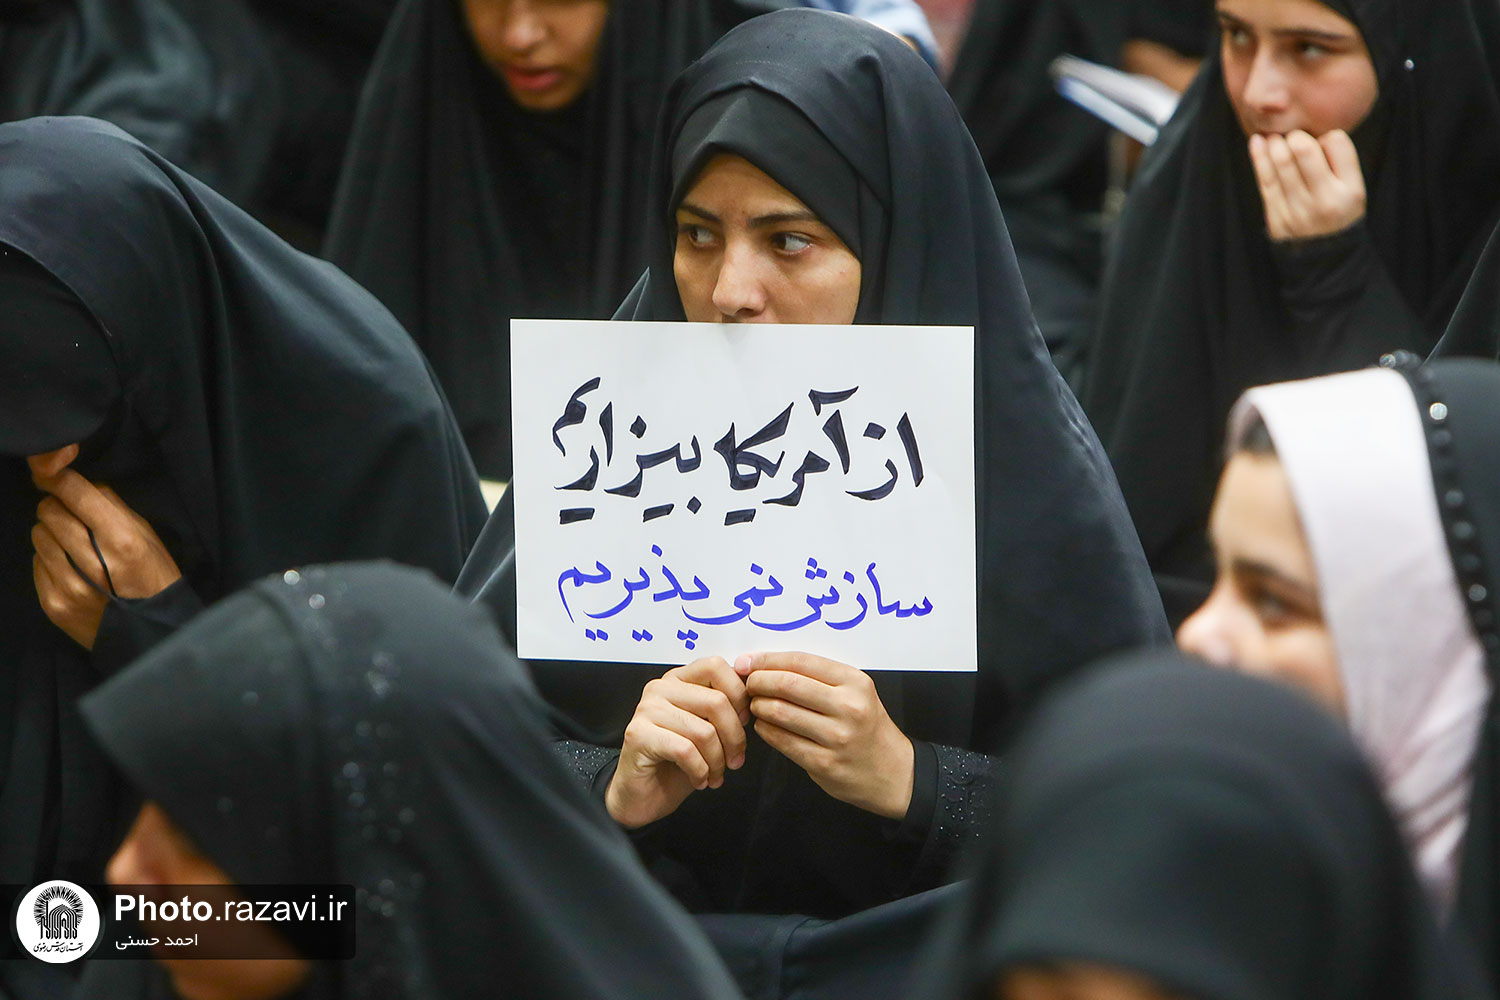 از آمریکا بیزاریم
سازش نمی پذیریم
Photo.razavi.ir
احمد حسنی
آستان قدس رضوی